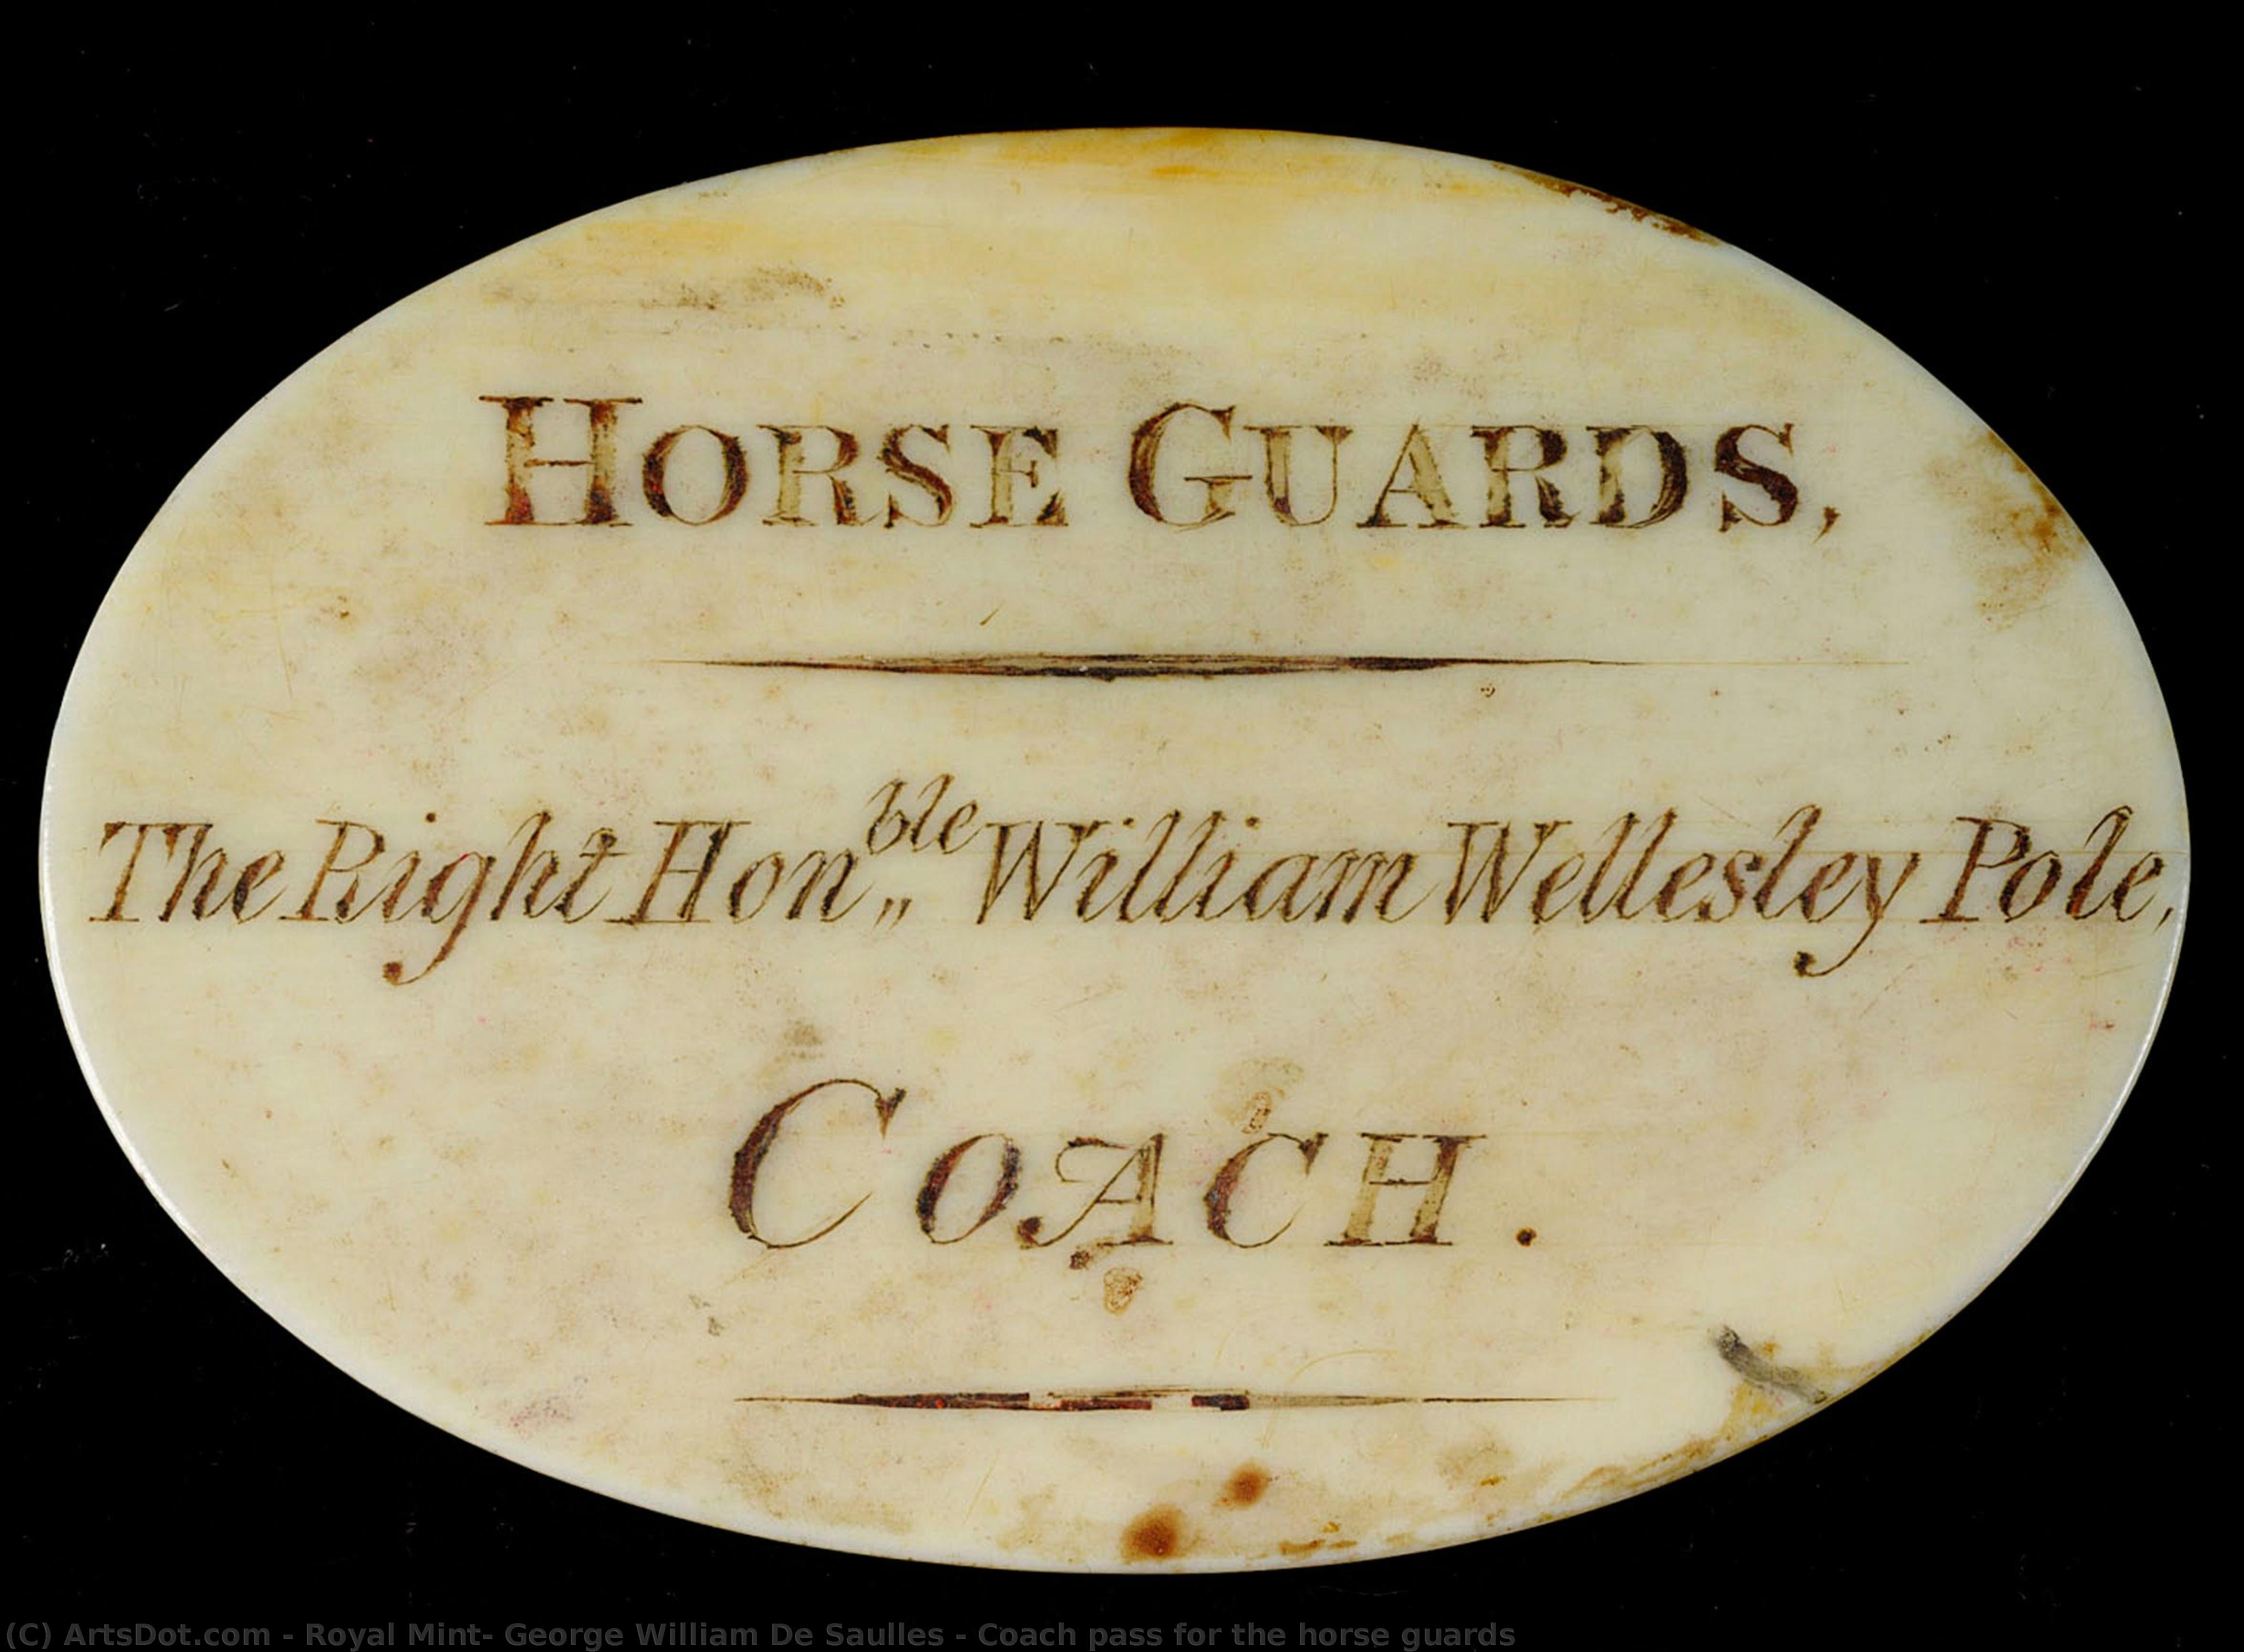 HORSE GUARDS,
The Right Hon^ble,, William Wellesley Pole,
COACH.
(C) ArtsDot.com - Royal Mint- George William De Saulles - Coach pass for the horse guards